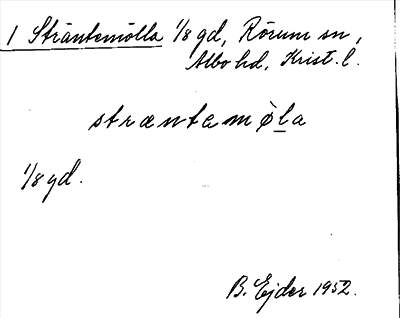 1 Sträntemölla 1/8 gd, Rörum sn,
Albo hd, Krist. l.
stræntamø̀la
1/8 gd.
B. Ejder 1952.